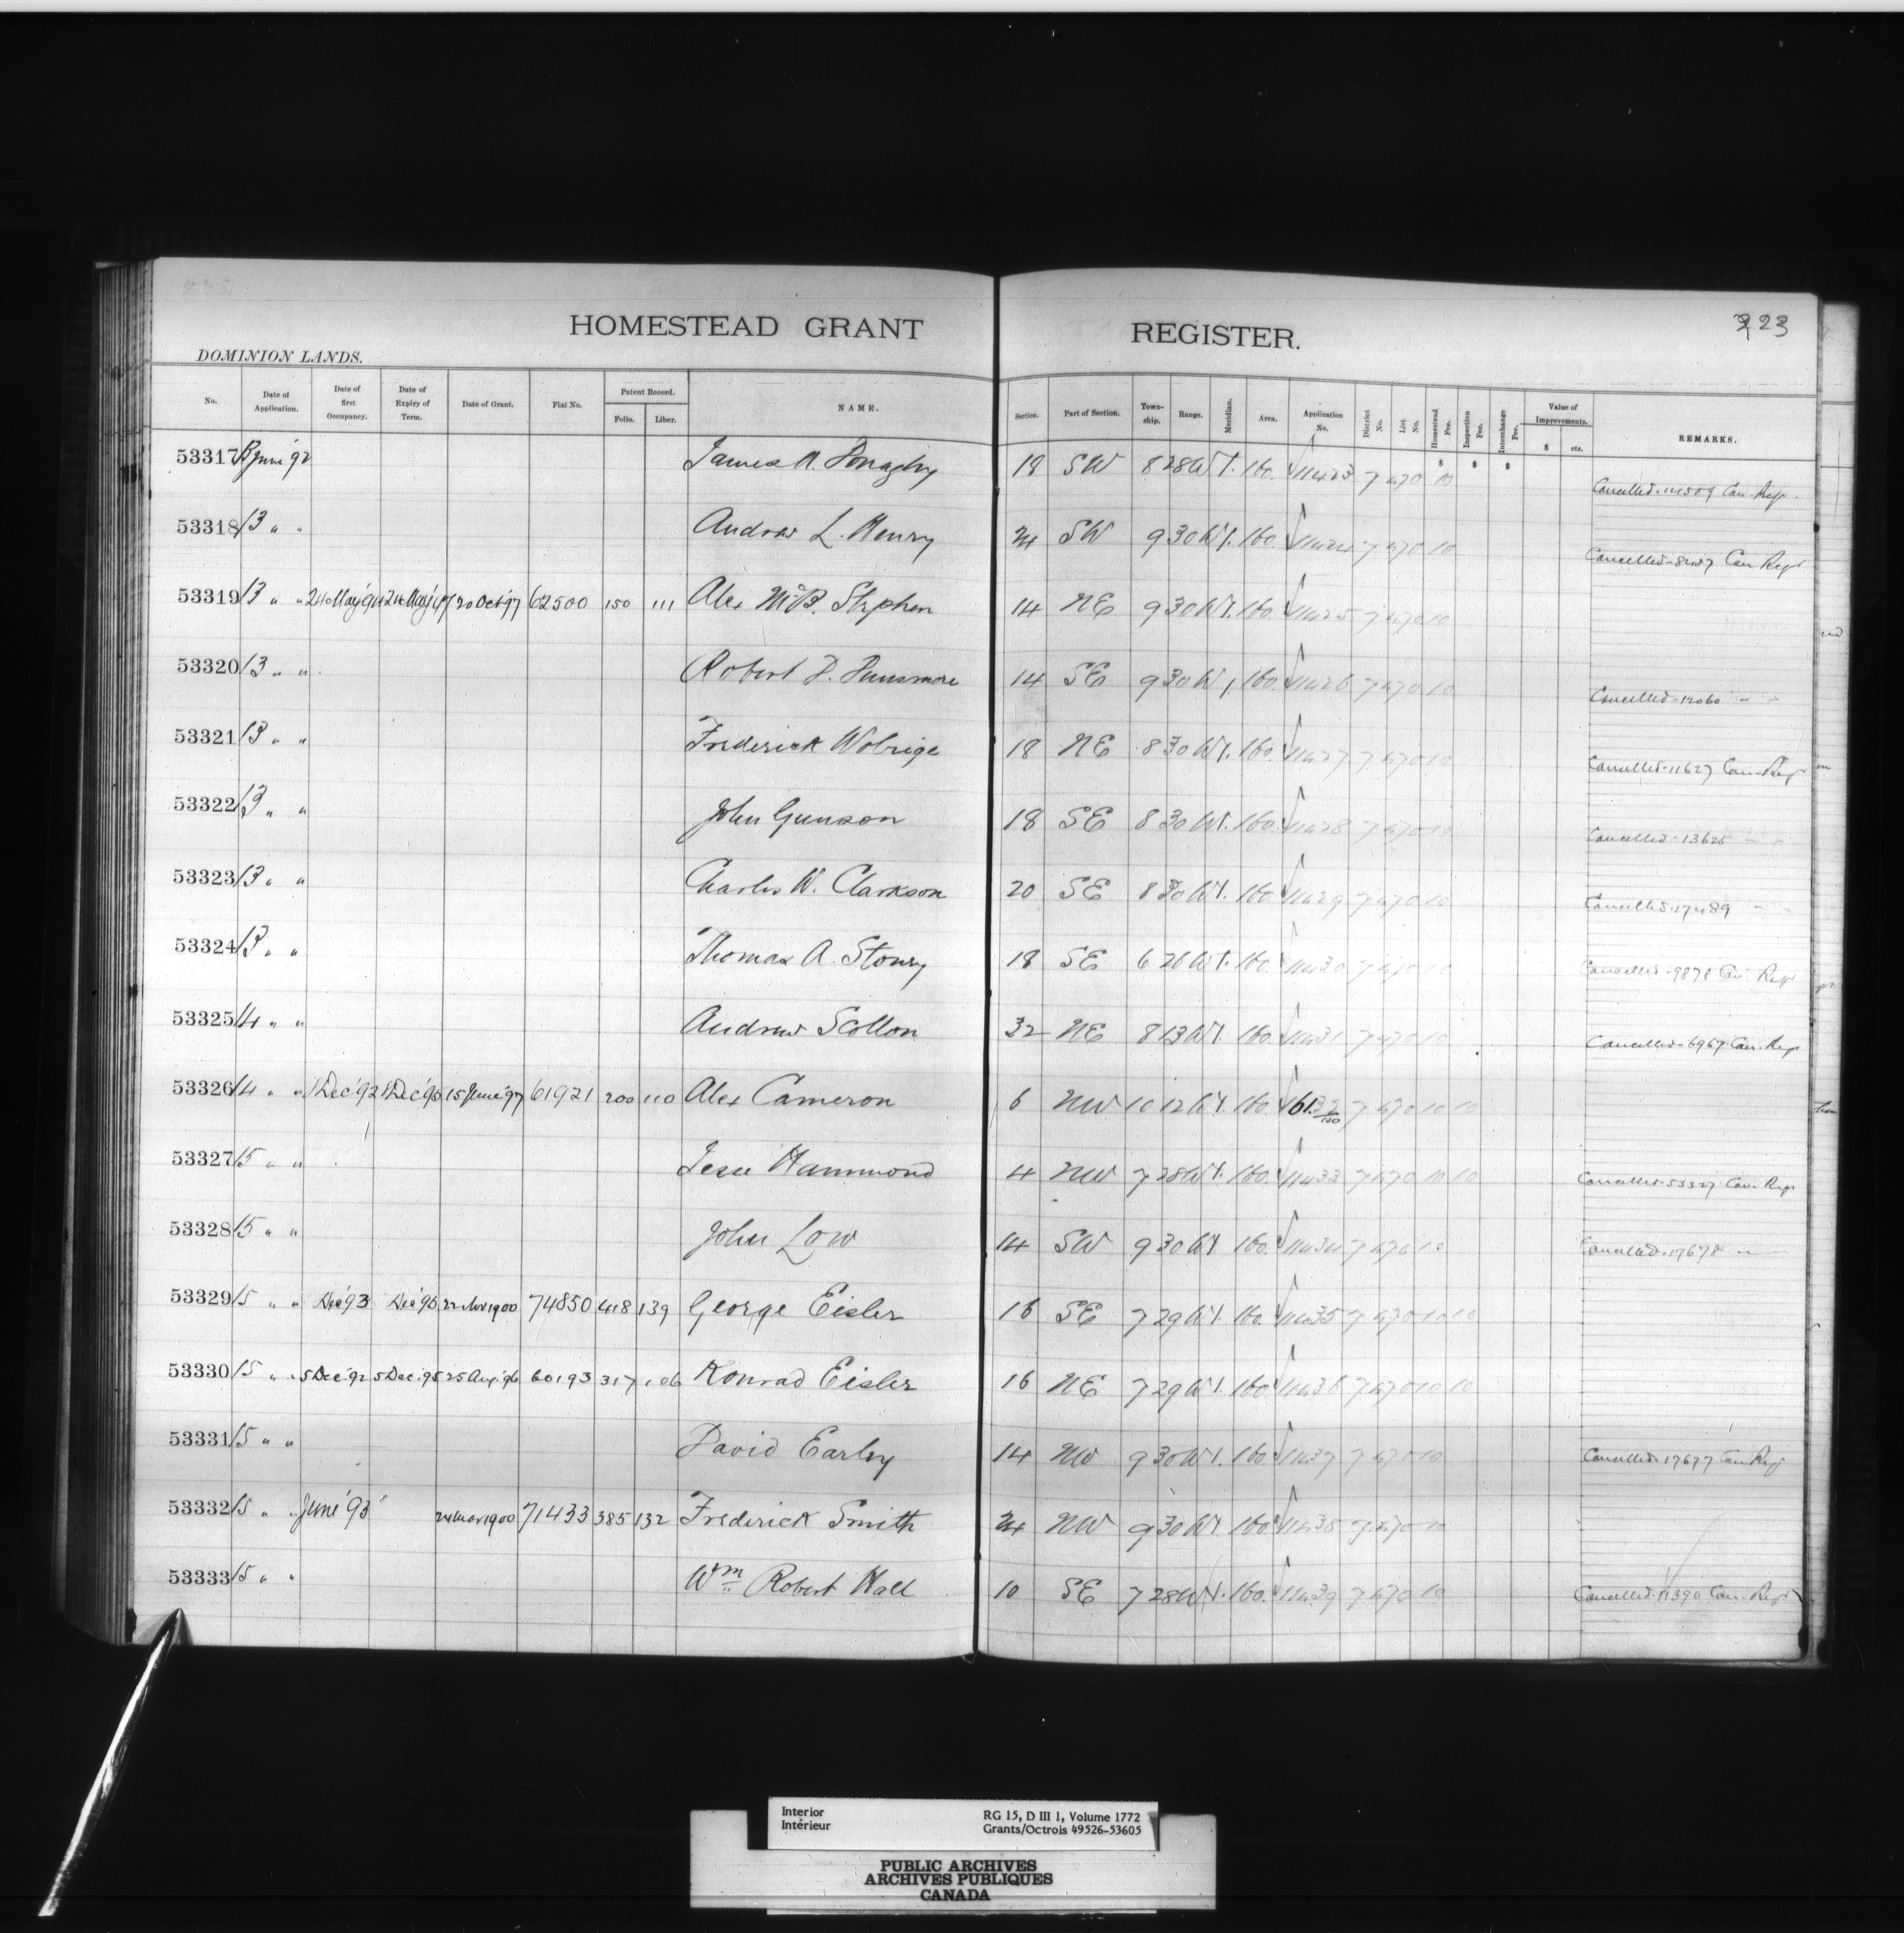 223
HOMESTEAD GRANT REGISTER.
DOMINION LANDS.
No. Date of Application. Date of first Occupancy. Date of Expiry of Term. Date of Grant. Fiat No. Patent Record. Folio. Liber. NAME. Section. Part of Section. Town-ship. Range. Meridian. Area. Application No. District No. List No. Homestead Fee. Inspection Fee. Interchange Fee. Value of Improvements. $ cts. REMARKS.
$ $ $
53317 13 June '92 James A. 18 SW 8 28 W1. 160. 11423 7 470 10 Cancelled Can. Reg.
53318 13 " " Andrew L. Henry 24 SW 9 30 W1. 160. 11424 7 470 10 Cancelled Can Regr
53319 13 " " 24 May '94 24 May '97 20 Oct '97 62500 150 111 Alex McB. Stephen 14 NE 9 30 W1. 160. 11425 7 470 10
53320 13 " " Robert D. Dunsmore 14 SE 9 30 W1 160. 11426 7 470 10 Cancelled-12060 " "
53321 13 " " Frederick Wobrige 18 NE 8 30 W1. 160. 11427 7 470 10 Cancelled-11627 Can Reg
53322 13 " " John Gunson 18 SE 8 30 W1. 160. 11428 7 470 10 Cancelled-13625 " "
53323 13 " " Charles W. Clarkson 20 SE 8 30 W1. 160 11429 7 470 10 Cancelled-17489 " "
53324 13 " " Thomas A. Stoney 18 SE 6 26 W1. 160. 11430 7 470 10 Cancelled-9878 Can Regr
53325 14 " " Andrew Scotton 32 NE 8 13 W1. 160. 11431 7 470 10 Cancelled-6967 Can. Reg
53326 14 " " 1 Dec '92 1 Dec '95 15 June '97 61921 200 110 Alex Cameron 6 NW 10 12 W1. 160. 7 470 10 10
53327 15 " " Jesse Hammond 4 NW 7 28 W1. 160. 11433 7 470 10 10 Cancelled-53327 Can. Reg
53328 15 " " John Low 14 SW 9 30 W1 160. 11434 7 470 10 Cancelled-17678 "
53329 15 " " Dec '93 Dec '96 22 Nov 1900 74850 418 139 George Eisler 16 SE 7 29 W1. 160. 11435 7 470 10 10
53330 15 " " 5 Dec '92 5 Dec '95 25 Aug '96 60193 317 106 Konrad Eisler 16 NE 7 29 W1. 160. 11436 7 470 10 10
53331 15 " " David Earley 14 NW 9 30 W1. 160. 11437 7 470 10 Cancelled-17677 Can Reg
53332 15 " " June '93 24 Mar 1900 71433 385 132 Frederick Smith 24 NW 9 30 W1. 160. 11438 7 470 10
53333 15 " " Wm Robert Hall 10 SE 7 28 W1. 160. 11439 7 470 10 Cancelled-11390 Can. Regr
Interior RG 15, D III 1, Volume 1772
Intérieur Grants/Octrois 49526-53605
PUBLIC ARCHIVES
ARCHIVES PUBLIQUES
CANADA